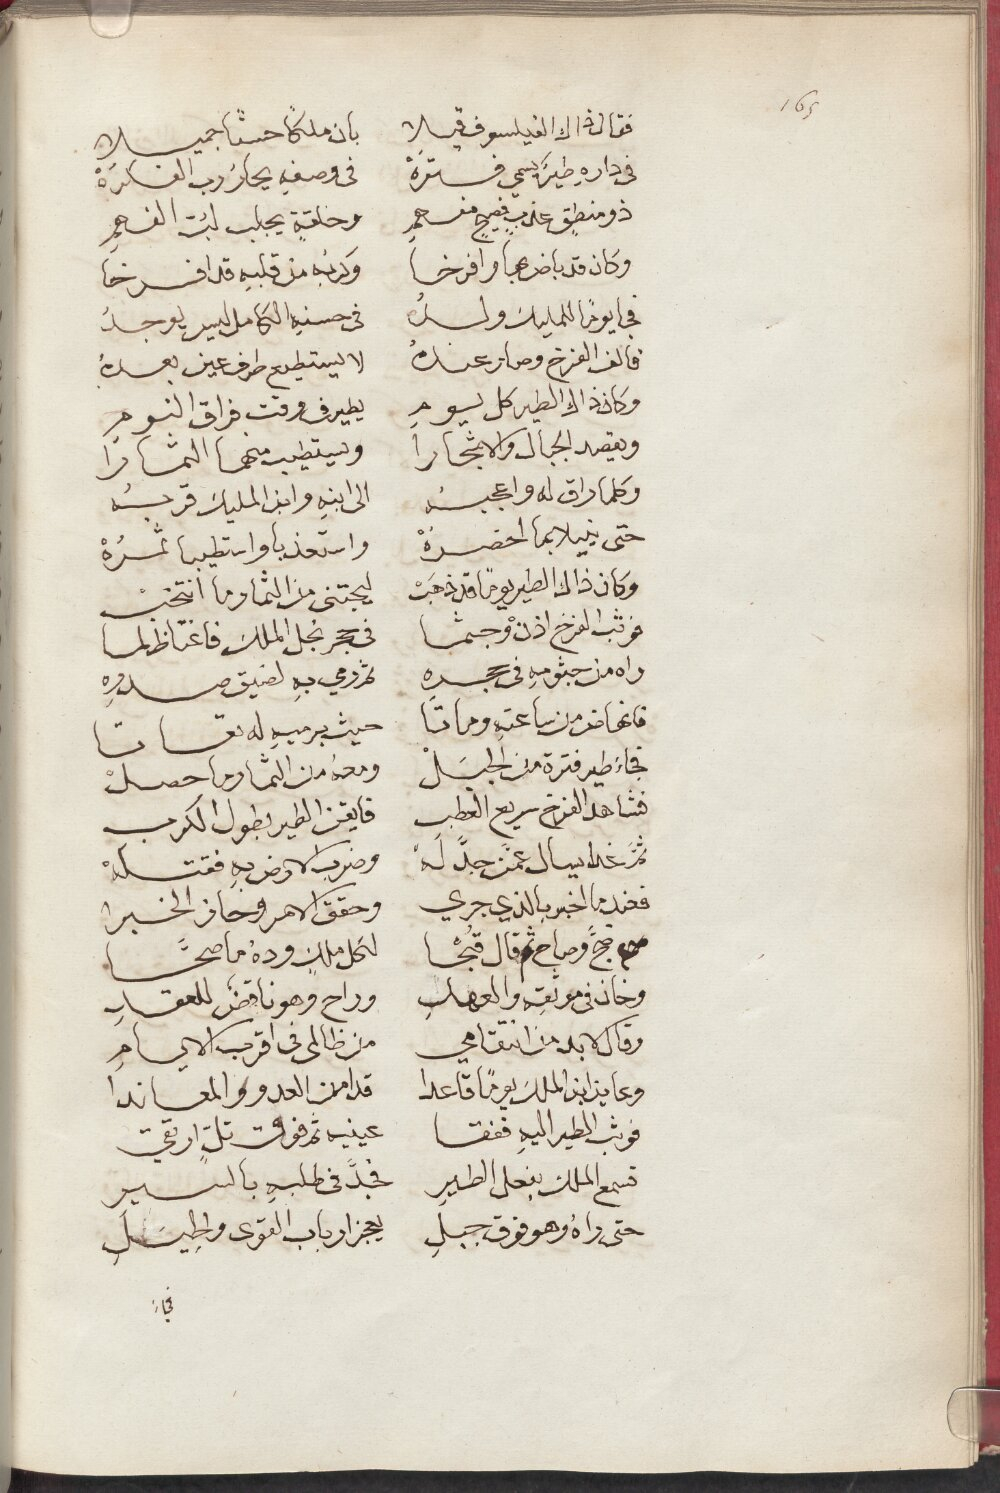 165
فقال ذاك الفيلسوف قيلا بان ملكا حسنا جميلا
في داره طير يسمي فتره في وصفه يحار رب الفكره
ذو منطق عذب فصيح مفهم وخلقة يجلب لب الفهم
وكان قد باض بها وافرخا وكربه من قلبه قد افرخا
فجا يوما للمليك ولد في حسنه الكامل ليس يوجد
فالف الفرخ وصار عنده لا يستطيع طرف عين بعده
وكان ذاك الطير كل يوم يطير في وقت فراق النوم
ويقصد الجبال والاشجارا ويستطيب منهما الثمارا
وكلما راق له واعجبه الى ابنه وابن المليك قربه
حتى ينيلا بما احضره واستعذبا واستطيبا ثمره
وكان ذاك الطير يوما قد ذهب ليجتني من الثمار ما انتخب
فوثب الفرخ اذن وجثما في حجر نجل الملك فاغتاظ لما
راه من جثومه في حجره ثم رمي به لضيق صدره
فانهاض من ساعته وماتا حيث برميه له
فجاء طير فترة من الجبل ومعه من الثمار ما حصل
فشاهد الفرخ سريع العطب فايقن الطير بطول الكرب
ثم غدا يسال عمن جدله وضرب الارض به فقتله
فعندما اخبر بالذي جري وحقق الامر وحاز الخبرا
ضج وصاح ثم قال قبحا لكل ملك وده ما صحا
وخان في موثقه والعهد وراح وهو ناقض للعقد
وقال لا بد من انتقامي من ظالمي في اقرب الايام
وعاين ابن الملك يوما قاعدا قد امن العدو والمعاندا
فوثب الطير اليه ففقا عينيه ثم فوق تل ارتقي
فسمع الملك بفعل الطير فجد في طلبه بالسير
حتى راه وهو فوق جبل يعجز ارباب القوى والحيل
فجاء